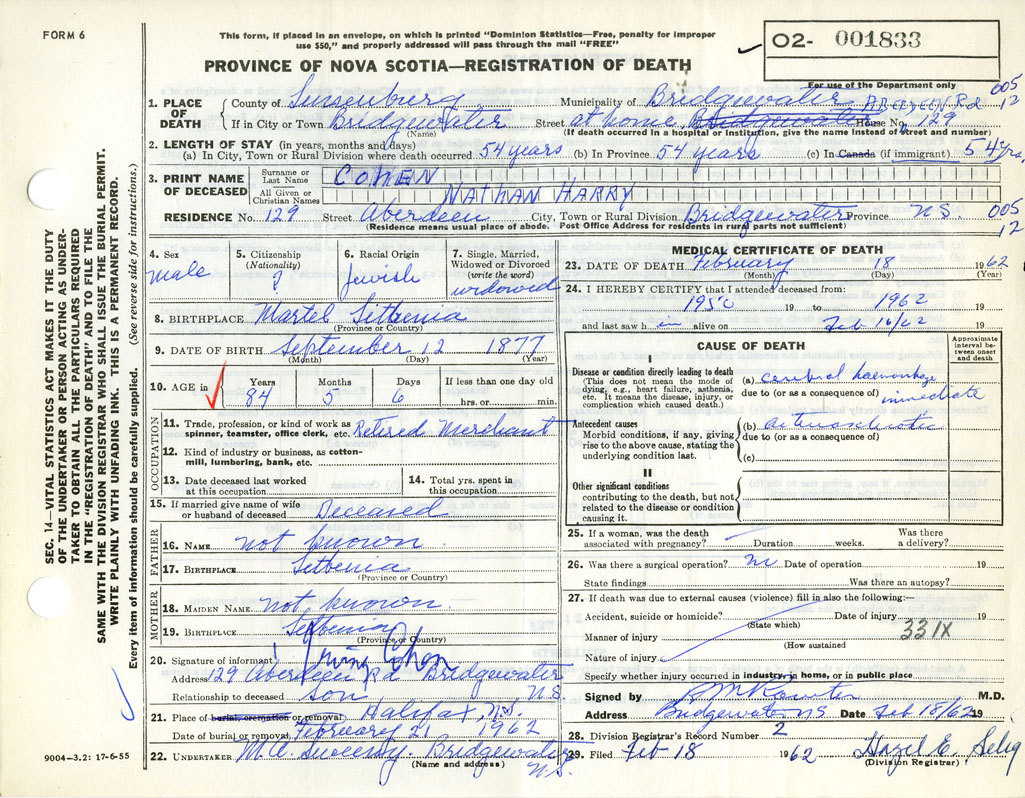 FORM 6
This form, if placed in an envelope, on which is printed "Dominion Statistics—Free, penalty for improper
use $50," and properly addressed will pass through the mail "FREE"
O2- 001833
For use of the Department only
PROVINCE OF NOVA SCOTIA—REGISTRATION OF DEATH
005
12
1. PLACE OF DEATH County of Lunenburg Municipality of Bridgewater
If in City or Town Bridgewater Street at home, Bridgewater ABERDEEN RD House No. 129
(Name) (If death occurred in a hospital or institution, give the name instead of street and number)
2. LENGTH OF STAY (in years, months and days)
(a) In City, Town or Rural Division where death occurred 54 years (b) In Province 54 years (c) In Canada (if immigrant) 54 yrs.
3. PRINT NAME OF DECEASED Surname or Last Name COHEN
All Given or Christian Names NATHAN HARRY
RESIDENCE No. 129 Street Aberdeen City, Town or Rural Division Bridgewater Province N.S. 005
12
(Residence means usual place of abode. Post Office Address for residents in rural parts not sufficient)
4. Sex male
5. Citizenship (Nationality) ?
6. Racial Origin Jewish
7. Single, Married, Widowed or Divorced (write the word) widowed
8. BIRTHPLACE Martel
(Province or Country)
9. DATE OF BIRTH September 12 1877
(Month) (Day) (Year)
10. AGE in Years 84 Months 5 Days 6 If less than one day old hrs. or min.
OCCUPATION
11. Trade, profession, or kind of work as spinner, teamster, office clerk, etc. Retired Merchant
12. Kind of industry or business, as cotton-mill, lumbering, bank, etc.
13. Date deceased last worked at this occupation
14. Total yrs. spent in this occupation
15. If married give name of wife or husband of deceased Deceased
FATHER
16. NAME not known
17. BIRTHPLACE
(Province or Country)
MOTHER
18. MAIDEN NAME not known
19. BIRTHPLACE
(Province or Country)
20. Signature of informant
Address 129 Aberdeen Rd Bridgewater N.S.
Relationship to deceased son
21. Place of burial, cremation or removal Halifax, N.S.
Date of burial or removal February 21 1962
22. UNDERTAKER Bridgewater N.S.
(Name and address)
9004-3.2: 17-6-55
MEDICAL CERTIFICATE OF DEATH
23. DATE OF DEATH February 18 1962
(Month) (Day) (Year)
24. I HEREBY CERTIFY that I attended deceased from:
1950 19 to 1962 19
and last saw h im alive on Feb 16/62 19
CAUSE OF DEATH
Approximate interval between onset and death
I
Disease or condition directly leading to death
(This does not mean the mode of dying, e.g., heart failure, asthenia, etc. It means the disease, injury, or complication which caused death.)
(a) cerebral haemorrhage
due to (or as a consequence of) immediate
Antecedent causes
Morbid conditions, if any, giving rise to the above cause, stating the underlying condition last.
(b)
due to (or as a consequence of)
(c)
II
Other significant conditions
contributing to the death, but not related to the disease or condition causing it.
25. If a woman, was the death associated with pregnancy? Duration weeks. Was there a delivery?
26. Was there a surgical operation? no Date of operation 19
State findings Was there an autopsy?
27. If death was due to external causes (violence) fill in also the following:—
Accident, suicide or homicide? Date of injury 19
(State which)
331X
Manner of injury
(How sustained
Nature of injury
Specify whether injury occurred in industry, in home, or in public place
Signed by M.D.
Address Bridgewater NS Date Feb 18/62 19
28. Division Registrar's Record Number 2
29. Filed Feb 18 1962 Hazel E. Selig
(Division Registrar)
SEC. 14—VITAL STATISTICS ACT MAKES IT THE DUTY
OF THE UNDERTAKER OR PERSON ACTING AS UNDER-
TAKER TO OBTAIN ALL THE PARTICULARS REQUIRED
IN THE "REGISTRATION OF DEATH" AND TO FILE THE
SAME WITH THE DIVISION REGISTRAR WHO SHALL ISSUE THE BURIAL PERMIT.
WRITE PLAINLY WITH UNFADING INK. THIS IS A PERMANENT RECORD.
Every item of information should be carefully supplied. (See reverse side for instructions.)